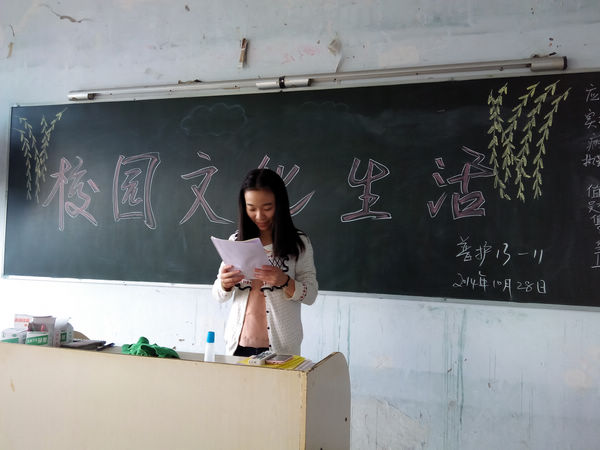 校园文化生活
普护13-11
2014年10月28日
应
实